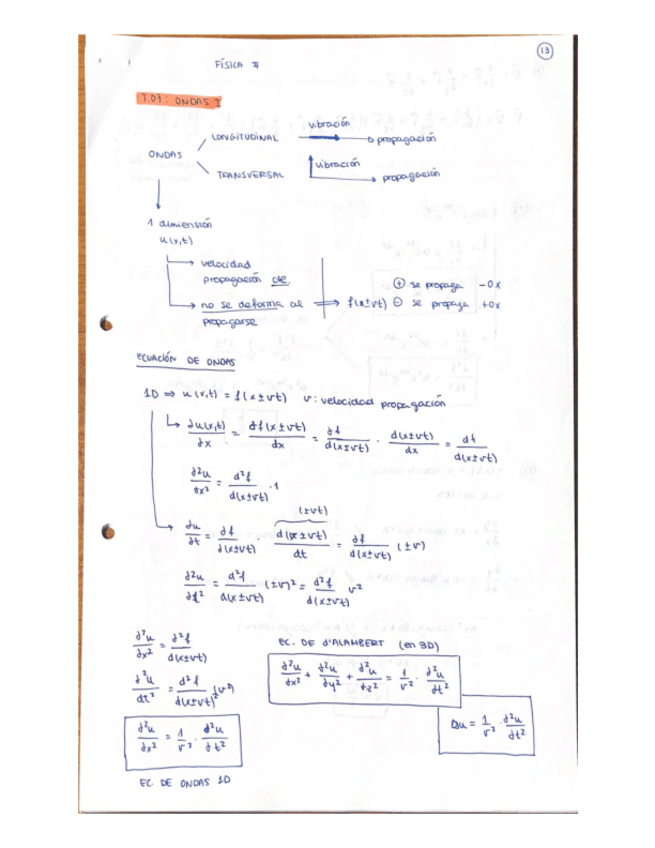 13
FÍSICA II
T.07: ONDAS I
ONDAS
LONGITUDINAL vibración → propagación
TRANSVERSAL ↑ vibración → propagación
1 dimensión
u(x,t)
→ velocidad propagación cte.
→ no se deforma al propagarse ⟹ f(x±vt)
⊕ se propaga -ox
⊖ se propaga +ox
ECUACIÓN DE ONDAS
1D ⇒ u(x,t) = f(x±vt) v: velocidad propagación
∂u(x,t)/∂x = ∂f(x±vt)/dx = ∂f/d(x±vt) · d(x±vt)/dx = df/d(x±vt)
∂²u/∂x² = d²f/d(x±vt) · 1
(±vt)
∂u/∂t = ∂f/∂(x±vt) · d(x±vt)/dt = ∂f/d(x±vt) (±v)
∂²u/∂t² = d²f/d(x±vt) (±v)² = d²f/d(x±vt) v²
∂²u/∂x² = ∂²f/d(x±vt)
∂²u/dt² = d²f/d(x±vt) (v²)
∂²u/∂x² = 1/v² · ∂²u/∂t²
EC. DE ONDAS 1D
EC. DE d'ALAMBERT (en 3D)
∂²u/∂x² + ∂²u/∂y² + ∂²u/∂z² = 1/v² · ∂²u/∂t²
Δu = 1/v² · ∂²u/∂t²